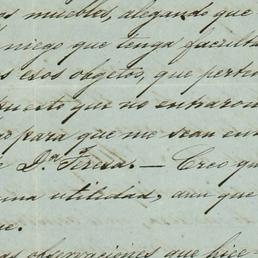 os muebles, alegando que
niego que tenga faculta
s esos objetos, que perte
puesto que no entraron
para que me sean en
e D.ª Teresa. — Creo qu
una utilidad, aun que
ue.
as observaciones que hice